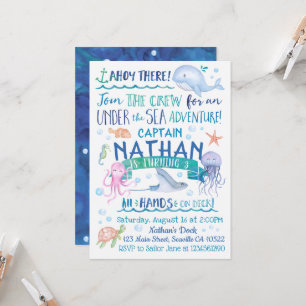 AHOY THERE!
Join THE CREW for an
UNDER the SEA ADVENTURE!
CAPTAIN
NATHAN
IS TURNING 3
All HANDS ON DECK!
Saturday, August 16 at 2:00PM
Nathan's Dock
123 Main Street, Seaville CA 10523
RSVP to Sailor Jane 555.555.1290